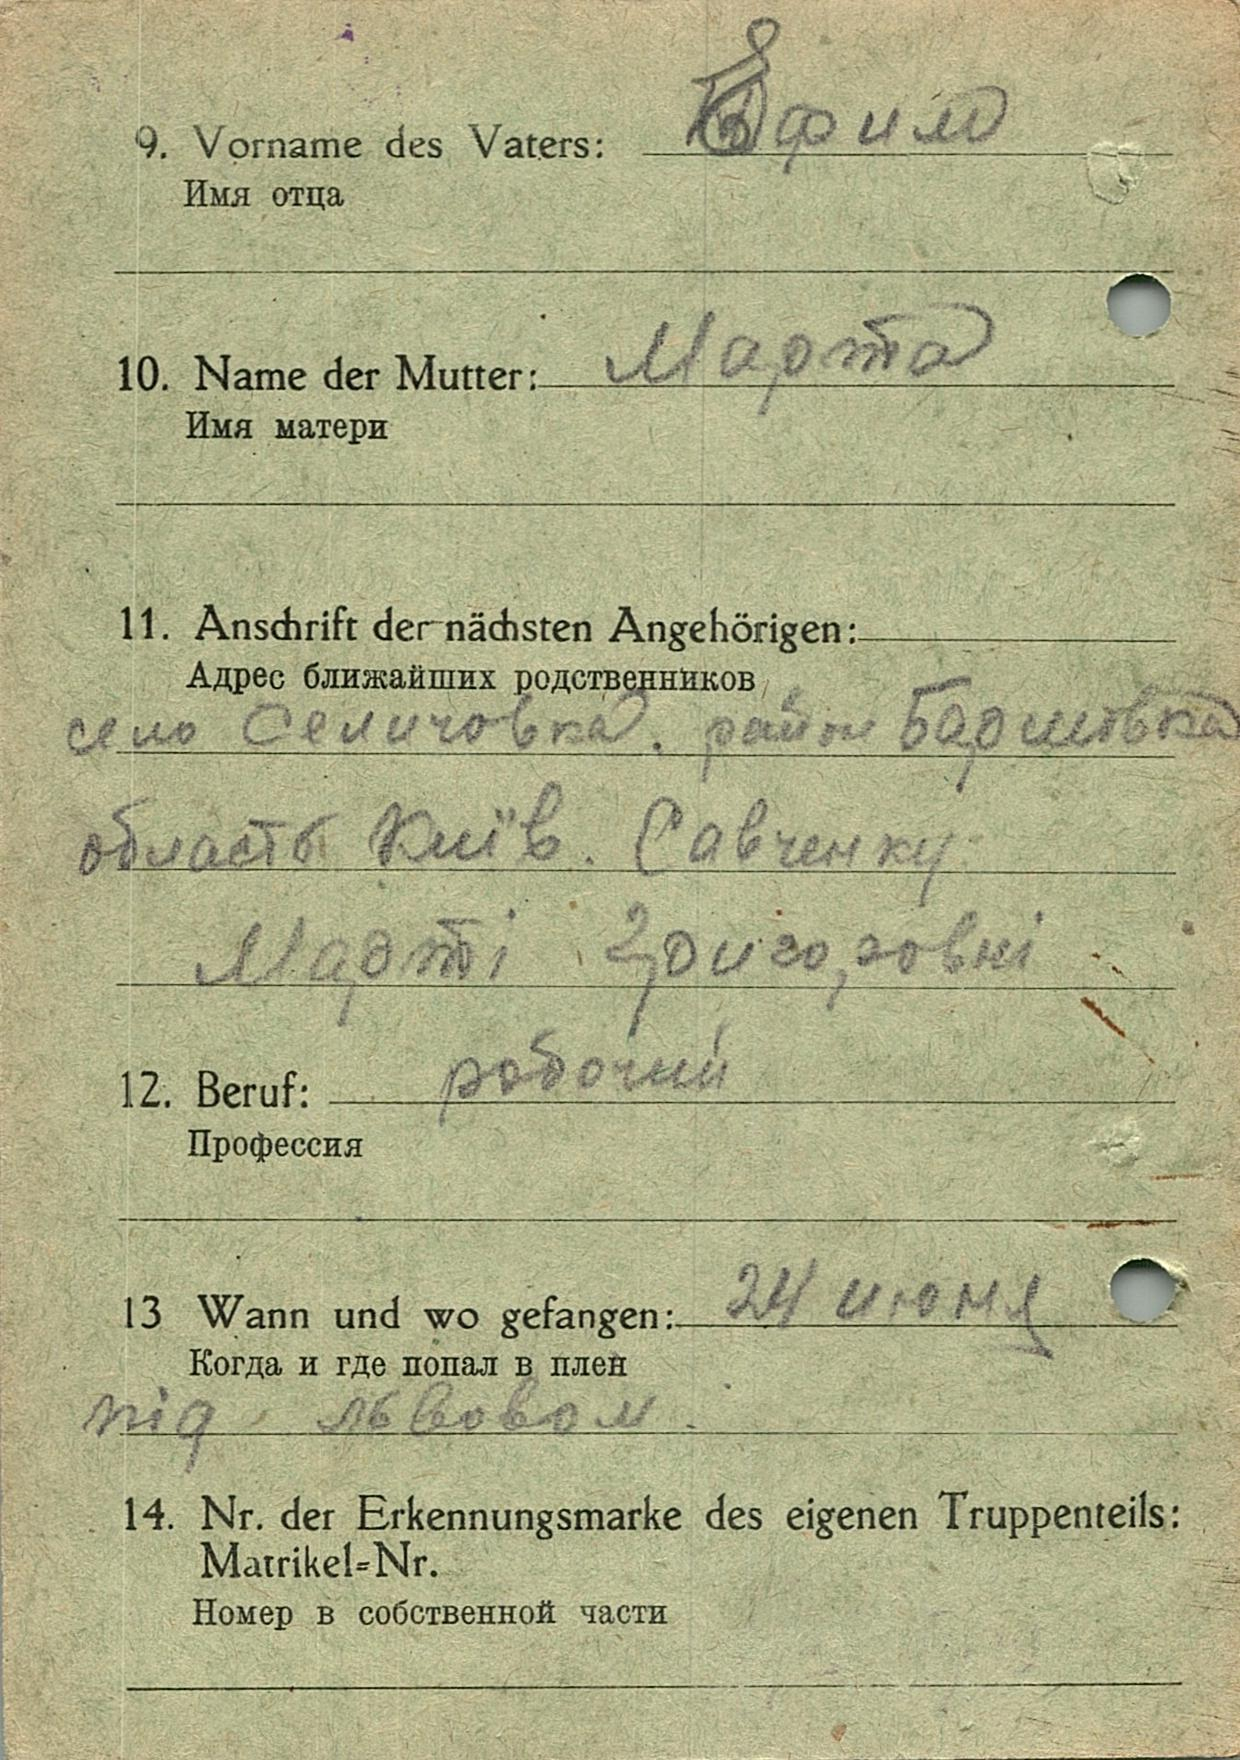 9. Vorname des Vaters: Ефим
Имя отца
10. Name der Mutter: Марта
Имя матери
11. Anschrift der nächsten Angehörigen:
Адрес ближайших родственников
село Селичовка. район Баришовка
область Київ. Савченку
Марті Григоровні
12. Beruf: робочий
Профессия
13 Wann und wo gefangen: 24 июня
Когда и где попал в плен
під львовом.
14. Nr. der Erkennungsmarke des eigenen Truppenteils:
Matrikel=Nr.
Номер в собственной части